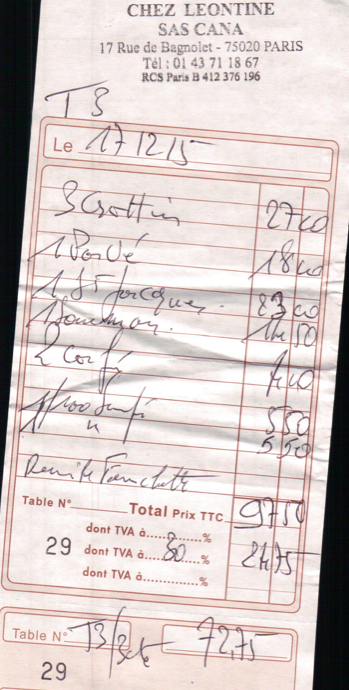 CHEZ LEONTINE
SAS CANA
17 Rue de Bagnolet - 75020 PARIS
Tél : 01 43 71 18 67
RCS Paris B 412 376 196
T3
Le 17 12 15
3 Crottin 27 00
1 Pavé 18 00
1 St Jacques 23 00
1 14.50
2 Café 4 00
1 5 50
1 " 5 50
Remise
Table N° Total Prix TTC 97 50
dont TVA à %
29 dont TVA à 30 % 24.75
dont TVA à %
Table N° T3 72,75
29